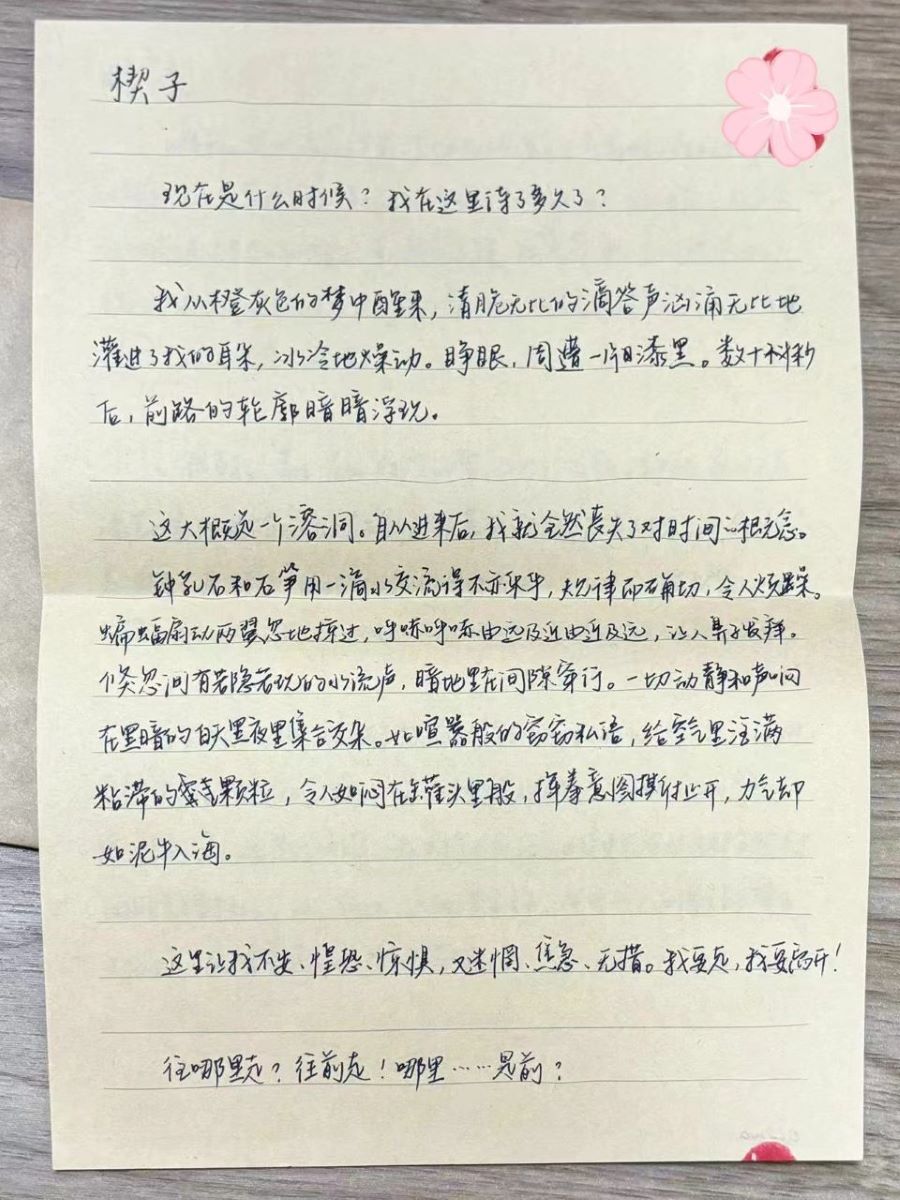 楔子
现在是什么时候？我在这里待了多久了？
我从橙灰色的梦中醒来，清脆无比的滴答声汹涌无比地
灌进了我的耳朵，冰冷地燥动。睁眼，周遭一片漆黑。数十秒
后，前路的轮廓暗暗浮现。
这大概是一个溶洞。自从进来后，我就全然丧失了对时间的概念。
钟乳石和石笋用一滴水交流得不亦乐乎，规律而确切，令人烦躁。
蝙蝠扇动两翼忽地掠过，呼哧呼哧由远及近由近及远，让人鼻子发痒。
倏忽间有若隐若现的水流声，暗地里在间隙穿行。一切动静和声响
在黑暗的白天黑夜里集合交杂。如喧嚣般的窃窃私语，给空气里注满
粘滞的颗粒，令人如闷在罐头里般，挥拳意图撕扯开，力气却
如泥牛入海。
这里让我不安、惶恐、惊惧，又迷惘、焦急、无措。我要走，我要离开！
往哪里走？往前走！哪里……是前？